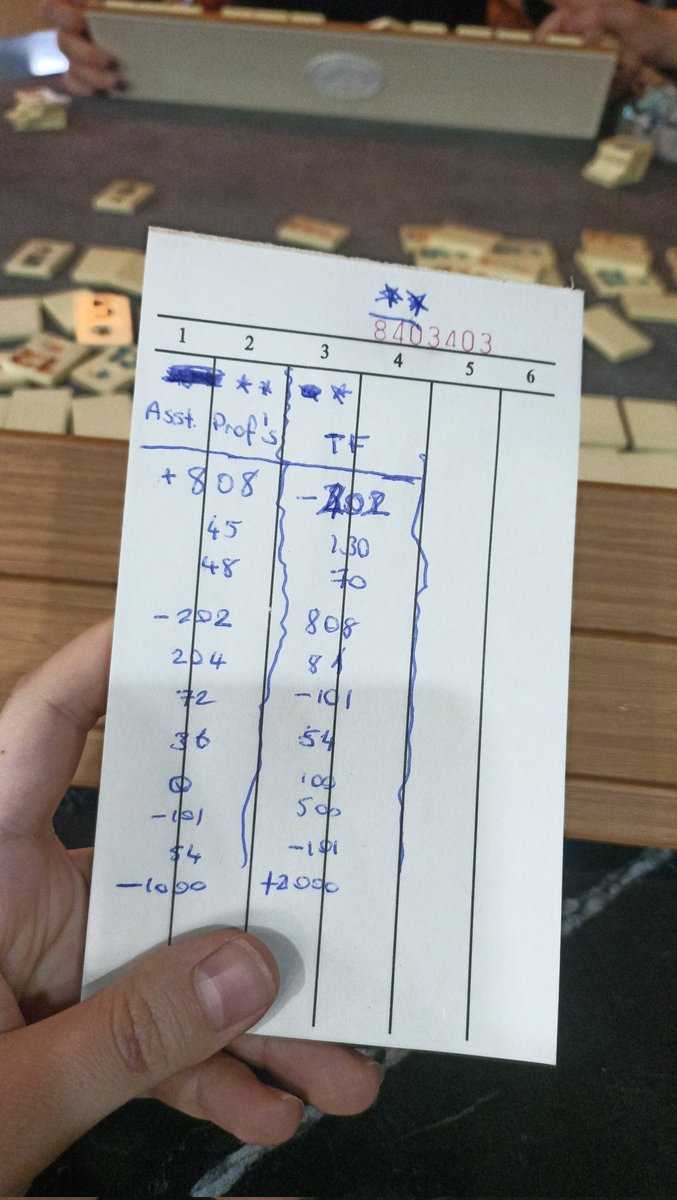 **
8403403
1 2 3 4 5 6
** *
Asst. Prof's TF
+808
45 130
48 70
-202 808
204 81
72 -101
36 54
0 100
-101 500
54 -101
-1000 +2000